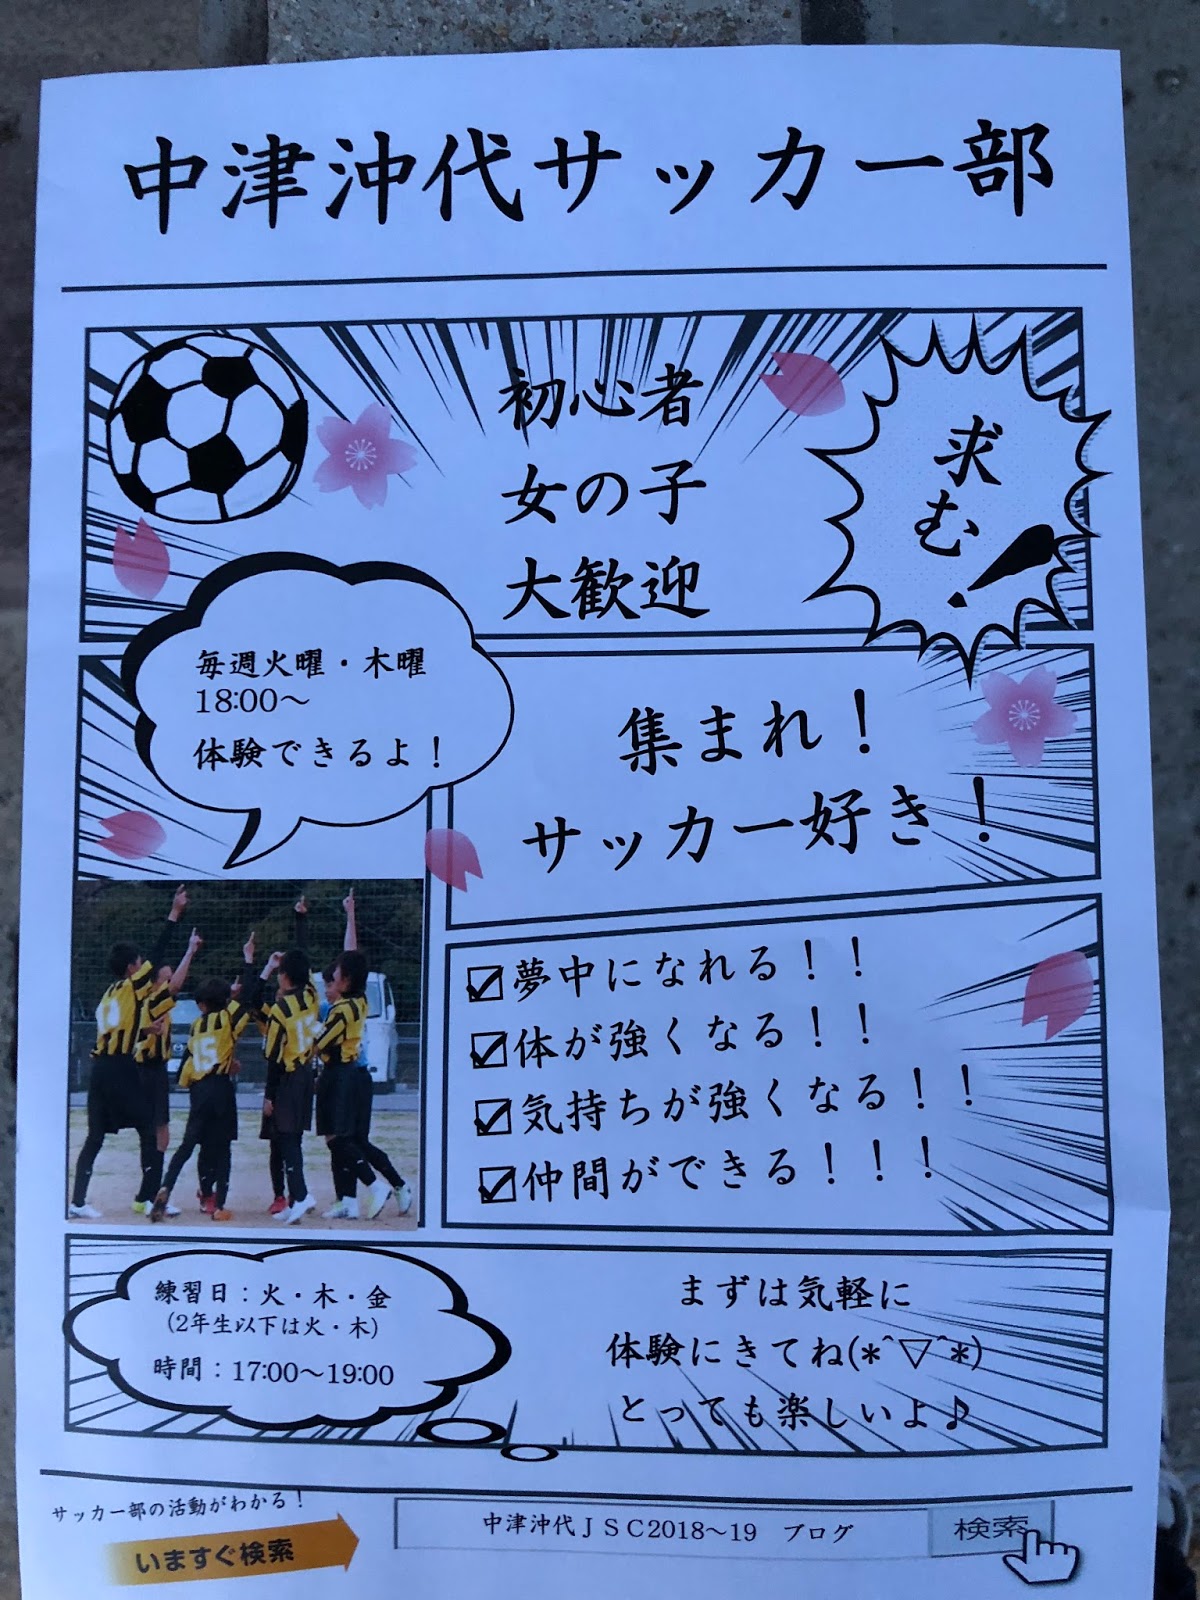 中津沖代サッカー部
初心者
女の子
大歓迎
求む！
毎週火曜・木曜
18:00～
体験できるよ！
集まれ！
サッカー好き！
☑夢中になれる！！
☑体が強くなる！！
☑気持ちが強くなる！！
☑仲間ができる！！！
練習日：火・木・金
(2年生以下は火・木)
時間：17:00～19:00
まずは気軽に
体験にきてね(*^▽^*)
とっても楽しいよ♪
サッカー部の活動がわかる！
いますぐ検索
中津沖代ＪＳＣ2018～19　ブログ
検索
15